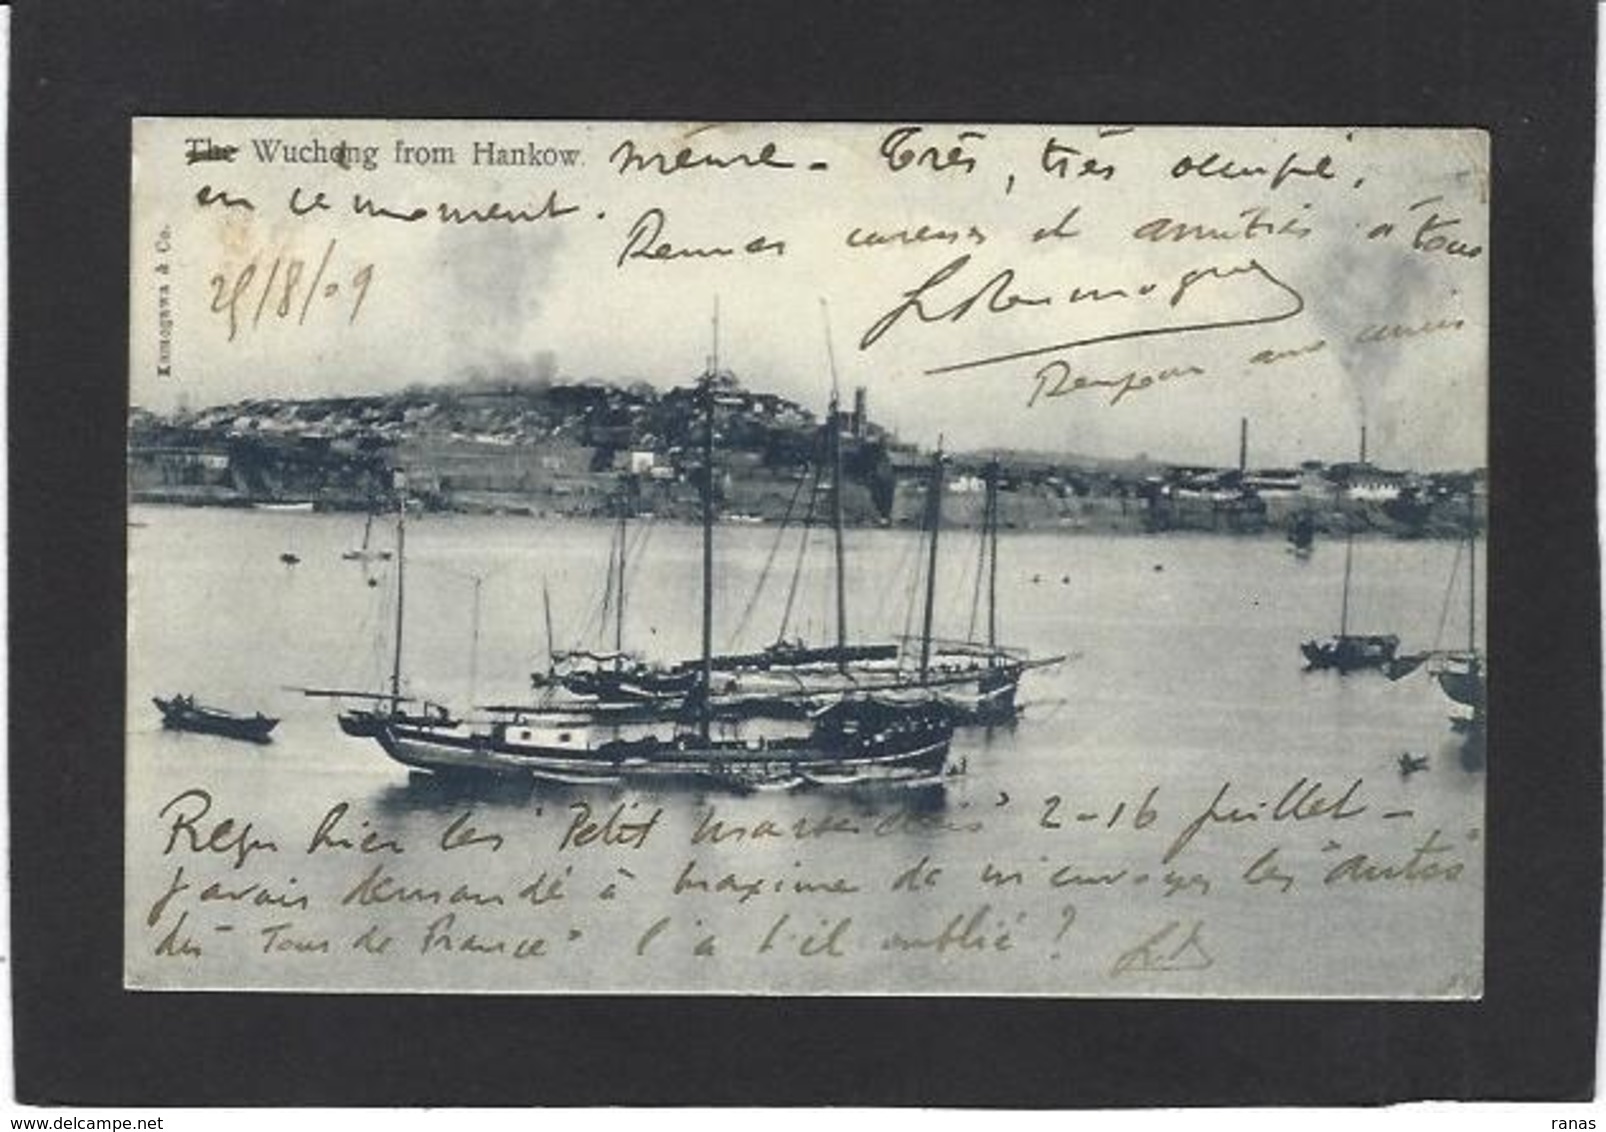 The Wuchang from Hankow. même - Très, très occupé,
en ce moment.
caresses et amitiés à tous
Kamogawa & Co.
25/8/09
aux amis
Reçu hier les "Petit Marseillais" 2-16 Juillet -
J'avais demandé à Maxime de m'envoyer les "autos"
des "Tour de France" l'a t'il oublié ?
delcampe.net
ranas